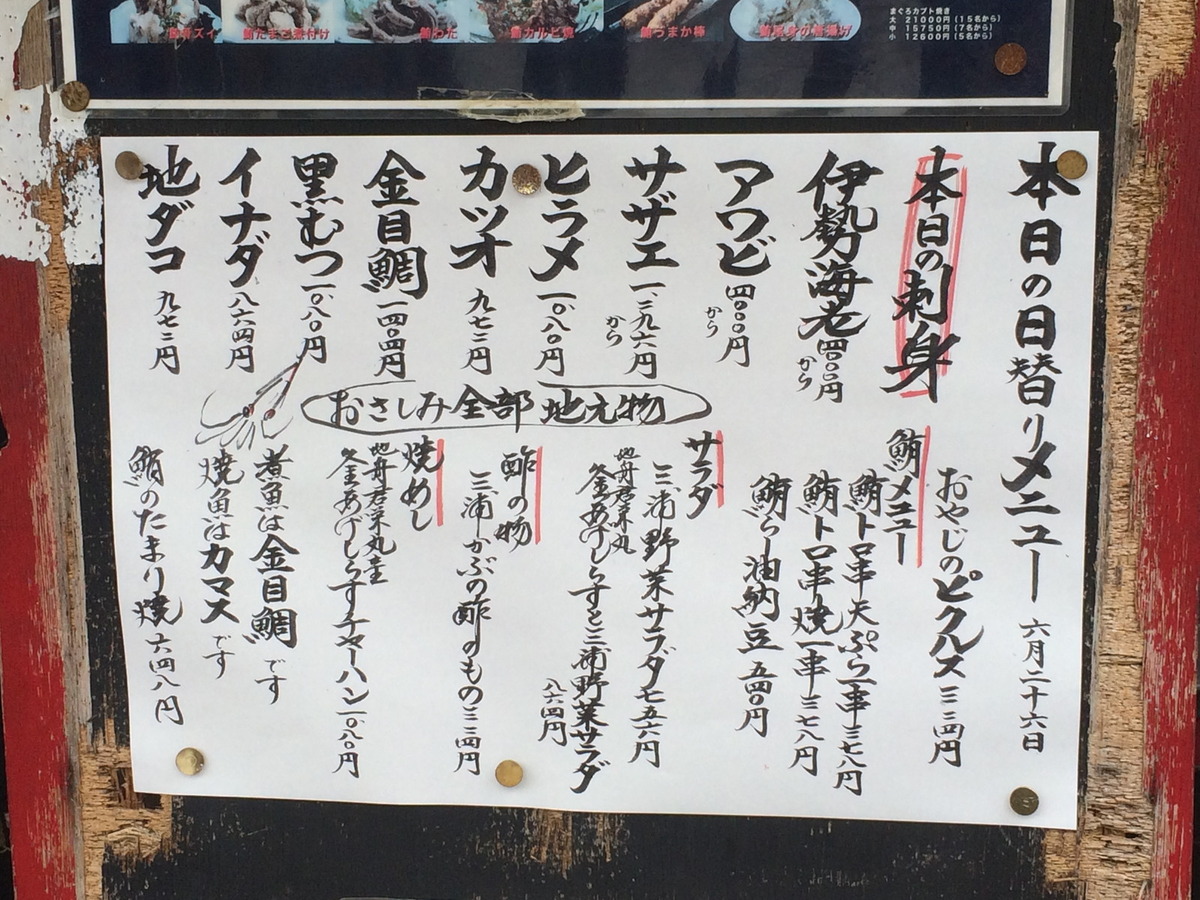 鮪カルビ焼
まぐろカブト焼き
大 21000円(15名から)
中 15750円(7名から)
小 12600円(5名から)
本日の日替りメニュー 六月二十六日
本日の刺身
伊勢海老 四〇〇円から
アワビ 四〇〇円から
サザエ 一、三九六円から
ヒラメ 一〇八〇円
カツオ 九七二円
金目鯛 一四〇四円
黒むつ 一〇八〇円
イナダ 八六四円
地ダコ 九七二円
おさしみ全部地元物
おやじのピクルス 三二四円
鮪メニュー
鮪トロ串天ぷら一串三七八円
鮪トロ串焼一串三七八円
鮪らー油納豆 五四〇円
サラダ
三浦野菜サラダ七五六円
釜あげしらすと三浦野菜サラダ
八六四円
酢の物
三浦かぶの酢のもの三二四円
焼めし
釜あげしらすチャーハン一〇八〇円
煮魚は金目鯛です
焼魚はカマスです
鮪のたまり焼 六四八円